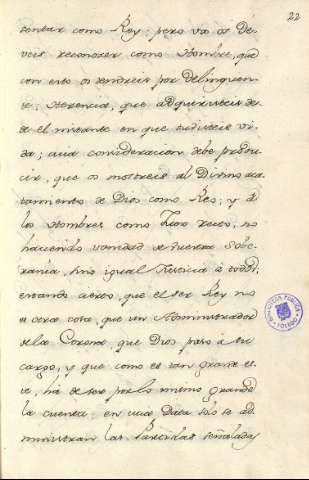 22
sentar como Rey; pero vos os de-
veis reconocer como Hombre, que
con esto os tendreis por delinquen-
te. Herencia, que adquiristeis des-
de el instante en que tuvisteis vi-
da; cuia consideracion debe produ-
cir, que os mostreis al Divino aca-
tamiento de Dios como Reo; y á
los Hombres como Juez recto, no
haciendo vanidad de vuestra Sobe-
rania, sino igual Justicia á todos,
estando cierto, que el ser Rey no
es otra cosa, que un Administrador
de la Corona, que Dios puso á su
cargo, y que como es tan grande es-
te, ha de ser por lo mismo grande
la cuenta: en cuia Data solo se ad-
ministran las Partidas señaladas
BIBLIOTECA PUBLICA
TOLEDO